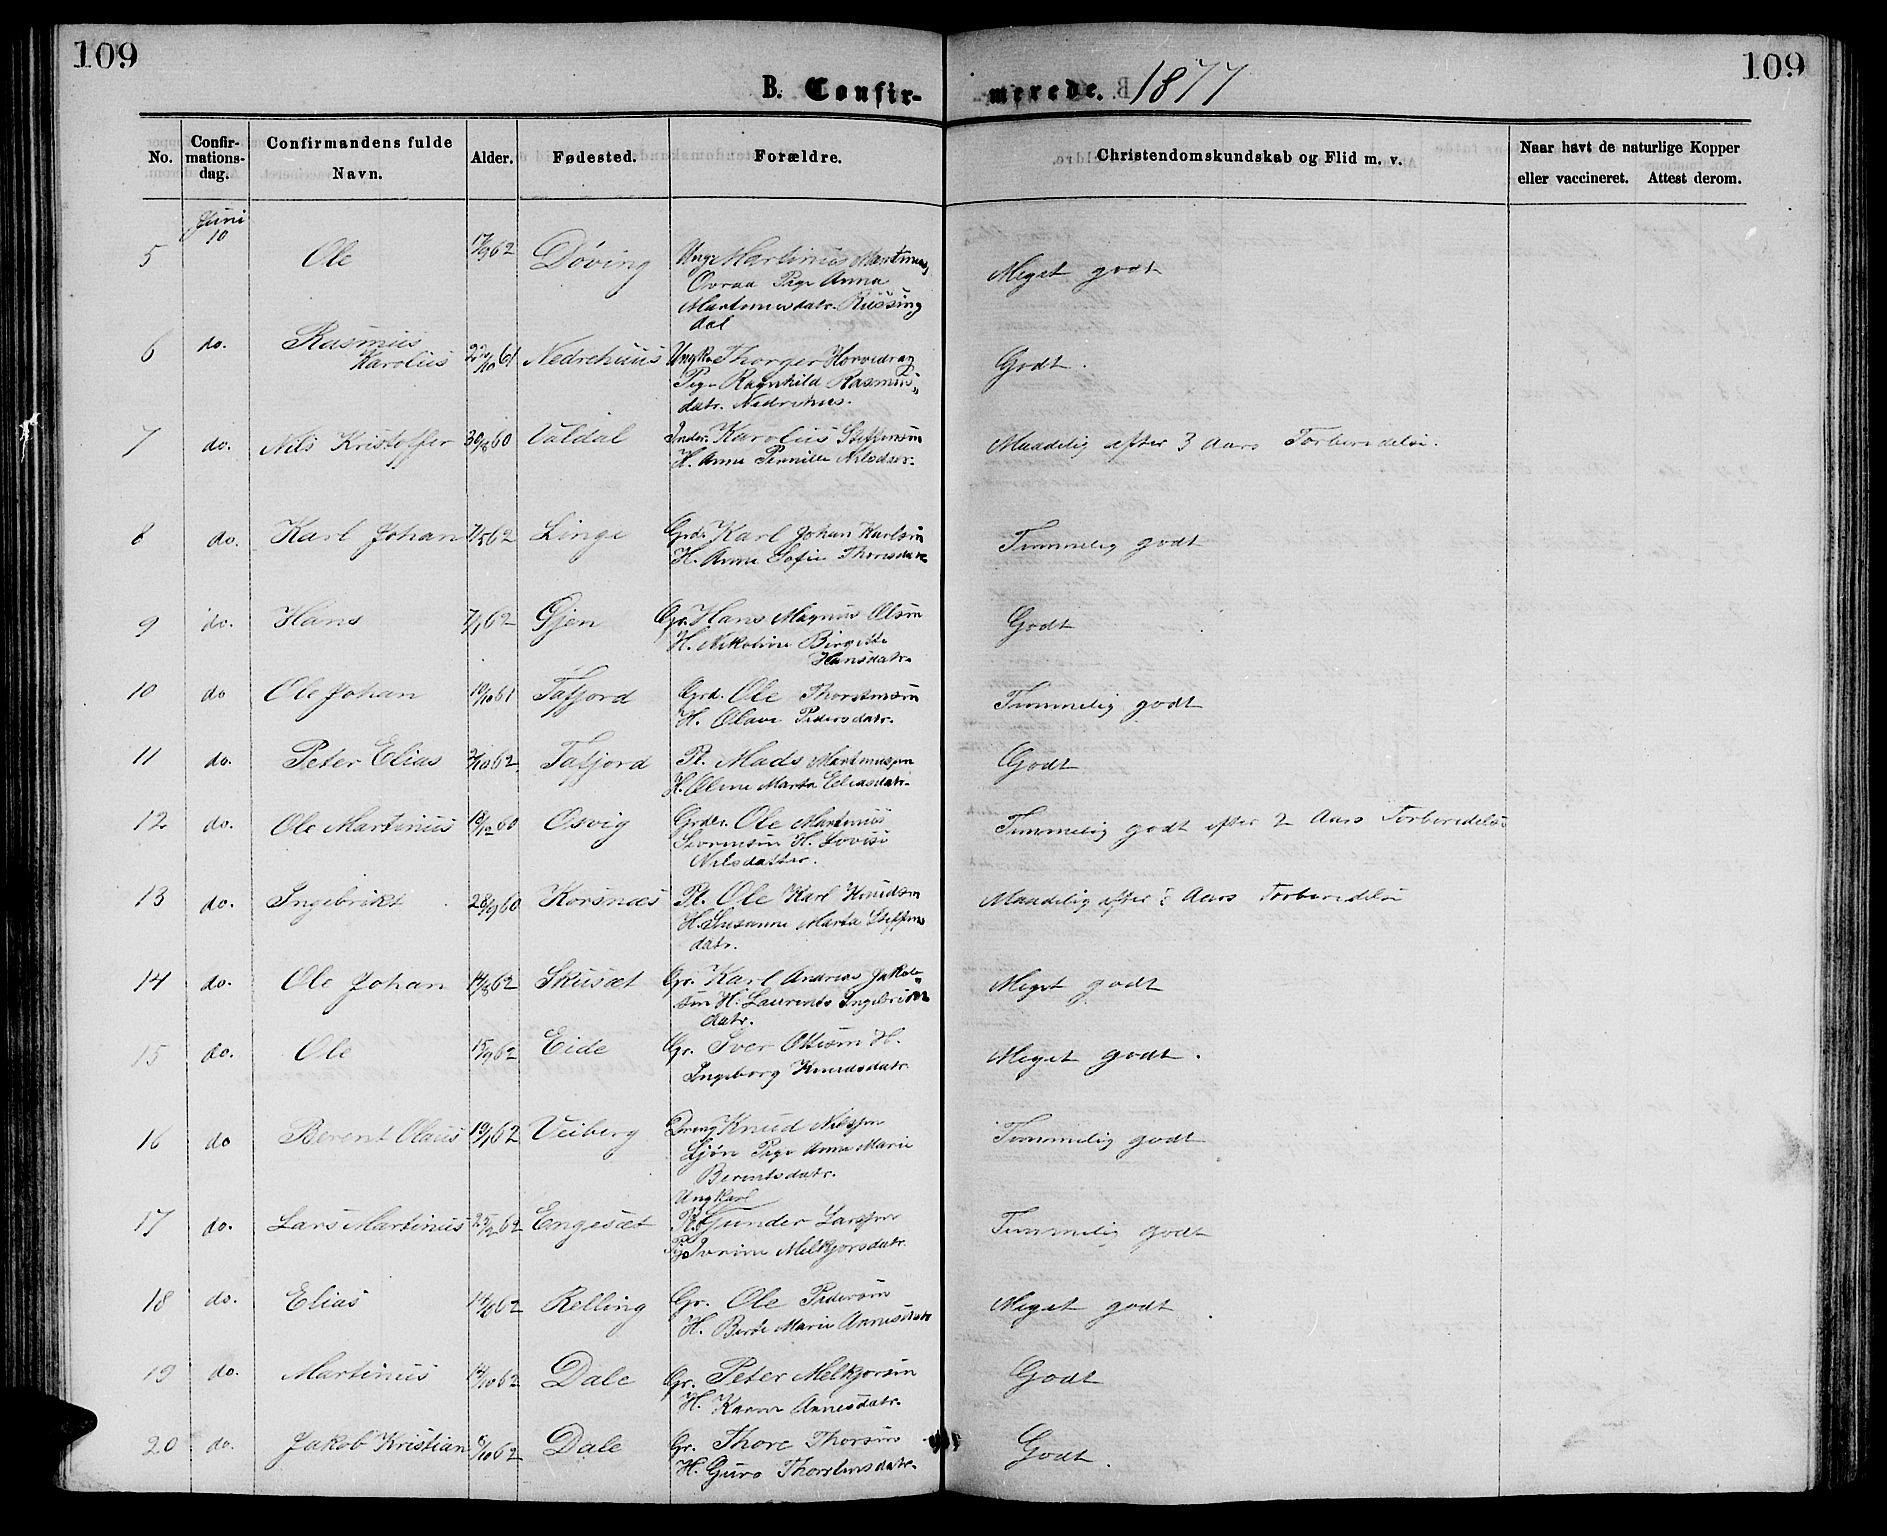 109
109
B. Confir-
merede. 1877
No.
Confir-
mations-
dag.
Confirmandens fulde
Navn.
Alder.
Fødested.
Forældre.
Christendomskundskab og Flid m. v.
Naar havt de naturlige Kopper
eller vaccineret. Attest derom.
Juni
10
5 Ole 17/9 62 Døving Martinus
Ovraa Pige Anna
Martinusdatr. Rüssing
dal
Meget godt
6 do. Rasmus
Karolius 61 Nedrehuus
Pige Ragnhild Rasmus
datr. Nedrehus.
Godt.
7 do. Nils Kristoffer 30/8 60 Valdal Inder. Karolius Steffensøn
H. Anne Pernille Nilsdatr.
Maadelig efter 3 Aars Forberedelse.
8 do. Karl Johan 7/5 62 Linge Grd. Karl Johan Karlsøn
H. Anne Sofie
Temmelig godt
9 do. Hans 7/1 62 Gjen Gr. Hans Magnus Olsøn
H. Nikoline Birgitte
Hansdatr.
Godt
10 do Ole Johan 19/10 61 Tafjord Grd. Ole Thorstensøn
H. Olave Pedersdatr.
Temmelig godt
11 do. Peter Elias 2/10 62 Tafjord Pl. Mads Martinussøn
H. Oline Marta Eliasdatr.
Godt
12 do. Ole Martinus 18/12 60 Osvig Grdr. Ole Martinus
H. Lovise
Nilsdatter.
Temmelig godt efter 2 Aars Forberedelse
13 do. Ingebrikt 28/9 60 Korsnæs Pl. Ole Karl Knudsøn
H. Susanne Marta Steffens
datr.
Maadelig efter Aars Forberedelse
14 do. Ole Johan 14/8 62 Skusæt Gr. Karl Andreas Jakob-
søn H. Laurentse
datr.
Meget godt
15 do. Ole 15/9 62 Eide Gr. Iver Ottesøn H.
Ingeborg Knudsdatr.
Meget godt.
16 do Berent Olaus 19/1 62 Veiberg Dreng Knud Nilssøn
Ljøen Pige Anne Marie
Berentsdatr.
Temmelig godt
Ungkarl
17 do. Lars Martinus 25/2 62 Engesæt Gunder Larssøn
Pige Ivrine Melkjorsdatr.
Temmelig godt
18 do. Elias 62 Relling Gr. Ole Pedersøn
H. Berte Marie Annesdatr
Meget godt
19 do. Martinus 14/10 62 Dale Gr. Peter Melkjorsøn
H. Karen Annesdatr.
Godt
20 do. Jakob Kristian 8/10 62 Dale Gr. Thore Thorsøn
H. Guro Thorstensdatr.
Godt.